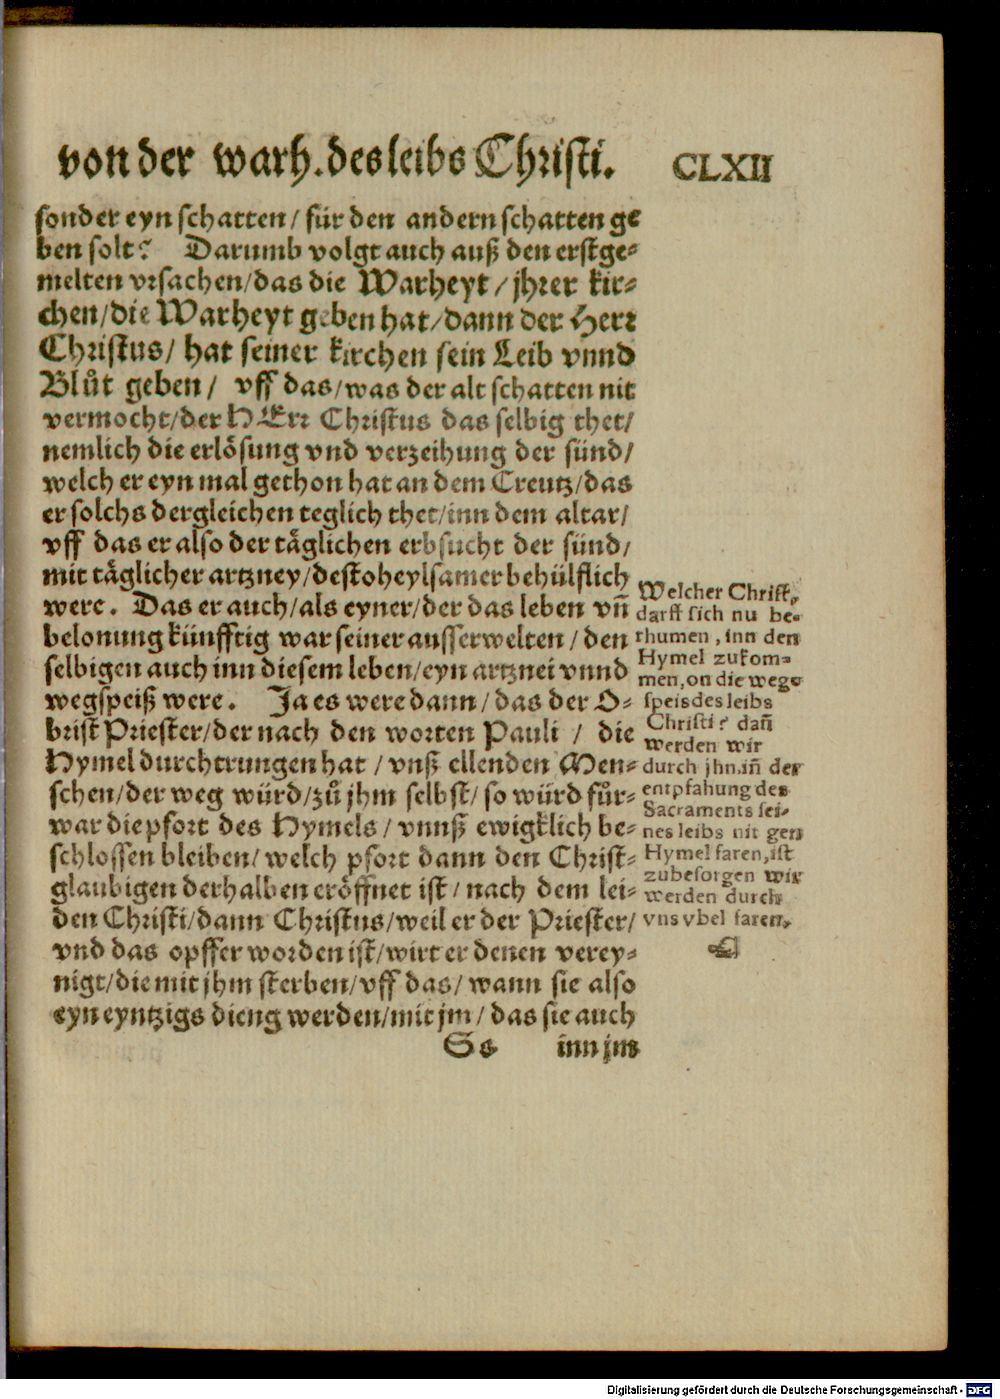 von der warh. des leibs Christi. CLXII
sonder eyn schatten/ für den andern schatten ge
ben solt? Darumb volgt auch auß den erstge-
melten vrsachen/das die Warheyt/ jhrer kir-
chen/die Warheyt geben hat/dann der Herr
Christus/ hat seiner kirchen sein Leib vnnd
Blůt geben/ vff das/was der alt schatten nit
vermocht/der HErr Christus das selbig thet/
nemlich die erlösung vnd verzeihung der sünd/
welch er eyn mal gethon hat an dem Creutz/das
er solchs dergleichen teglich thet/inn dem altar/
vff das er also der täglichen erbsucht der sünd/
mit täglicher artzney/destoheylsamer behülflich
were. Das er auch/als eyner/der das leben vñ
belonung künfftig war seiner ausserwelten/den
selbigen auch inn diesem leben/eyn artznei vnnd
wegspeiß were. Ja es were dann/das der O-
brist Priester/der nach den worten Pauli / die
Hymel durchtrungen hat/vnß ellenden Men-
schen/der weg würd/zů jhm selbst/so würd für-
war die pfort des Hymels/vnnß ewigklich be-
schlossen bleiben/welch pfort dann den Christ-
glaubigen derhalben eröffnet ist/nach dem lei-
den Christi/dann Christus/weil er der Priester/
vnd das opffer worden ist/wirt er denen verey-
nigt/die mit jhm sterben/vff das/wann sie also
eyn eyntzigs dieng werden/mit jm/das sie auch
Ss inn jm
Welcher Christ,
darff sich nu be-
rhumen, inn den
Hymel zukom-
men, on die weg-
speis des leibs
Christi? dañ
werden wir
durch jhn. iñ der
entpfahung des
Sacraments sei-
nes leibs nit gen
Hymel faren, ist
zubesorgen wir
werden durch
vns vbel faren.